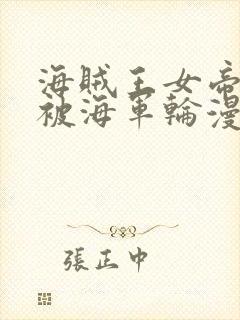 海賊王女帝
被海軍輪漫
張正中